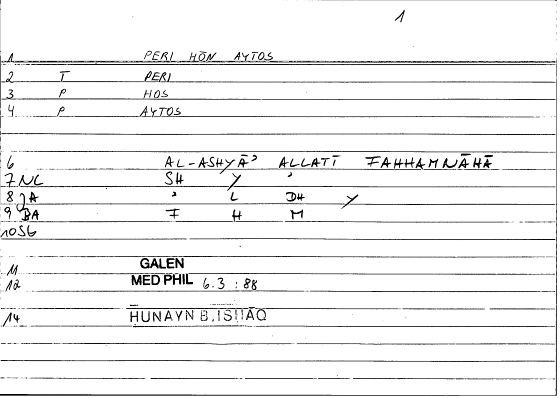 1
1 PERI HŌN AYTOS
2 T PERI
3 P HOS
4 P AYTOS
6 AL-ASHYĀʾ ALLATĪ FAHHAMNĀHĀ
7 NL SH Y ʾ
8 JA ʾ L DH Y
9 BA F H M
10 SG
11 GALEN
12 MED PHIL 6.3 : 88
14 ḤUNAYN B. ISḤĀQ